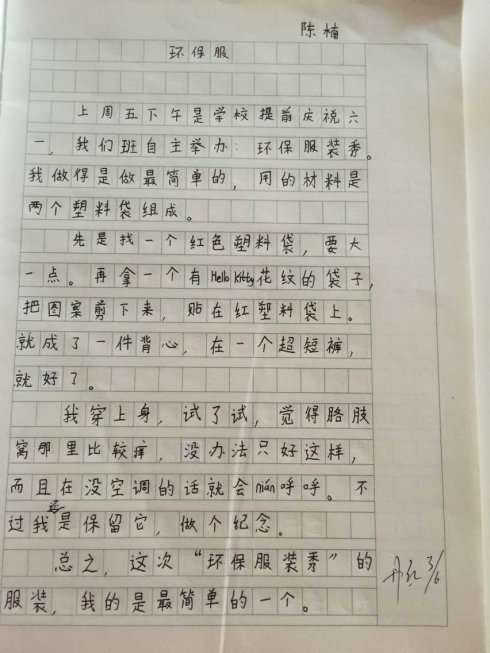 陈楠
环保服
上周五下午是学校提前庆祝六
一，我们班自主举办：环保服装秀。
我做得是做最简单的，用的材料是
两个塑料袋组成。
先是找一个红色塑料袋，要大
一点。再拿一个有Hello Kitty花纹的袋子，
把图案剪下来，贴在红塑料袋上。
就成了一件背心，在一个超短裤，
就好了。
我穿上身，试了试，觉得胳肢
窝那里比较痒，没办法只好这样，
而且在没空调的话就会nián呼呼。不
过我还是保留它，做个纪念。
总之，这次“环保服装秀”的
服装，我的是最简单的一个。